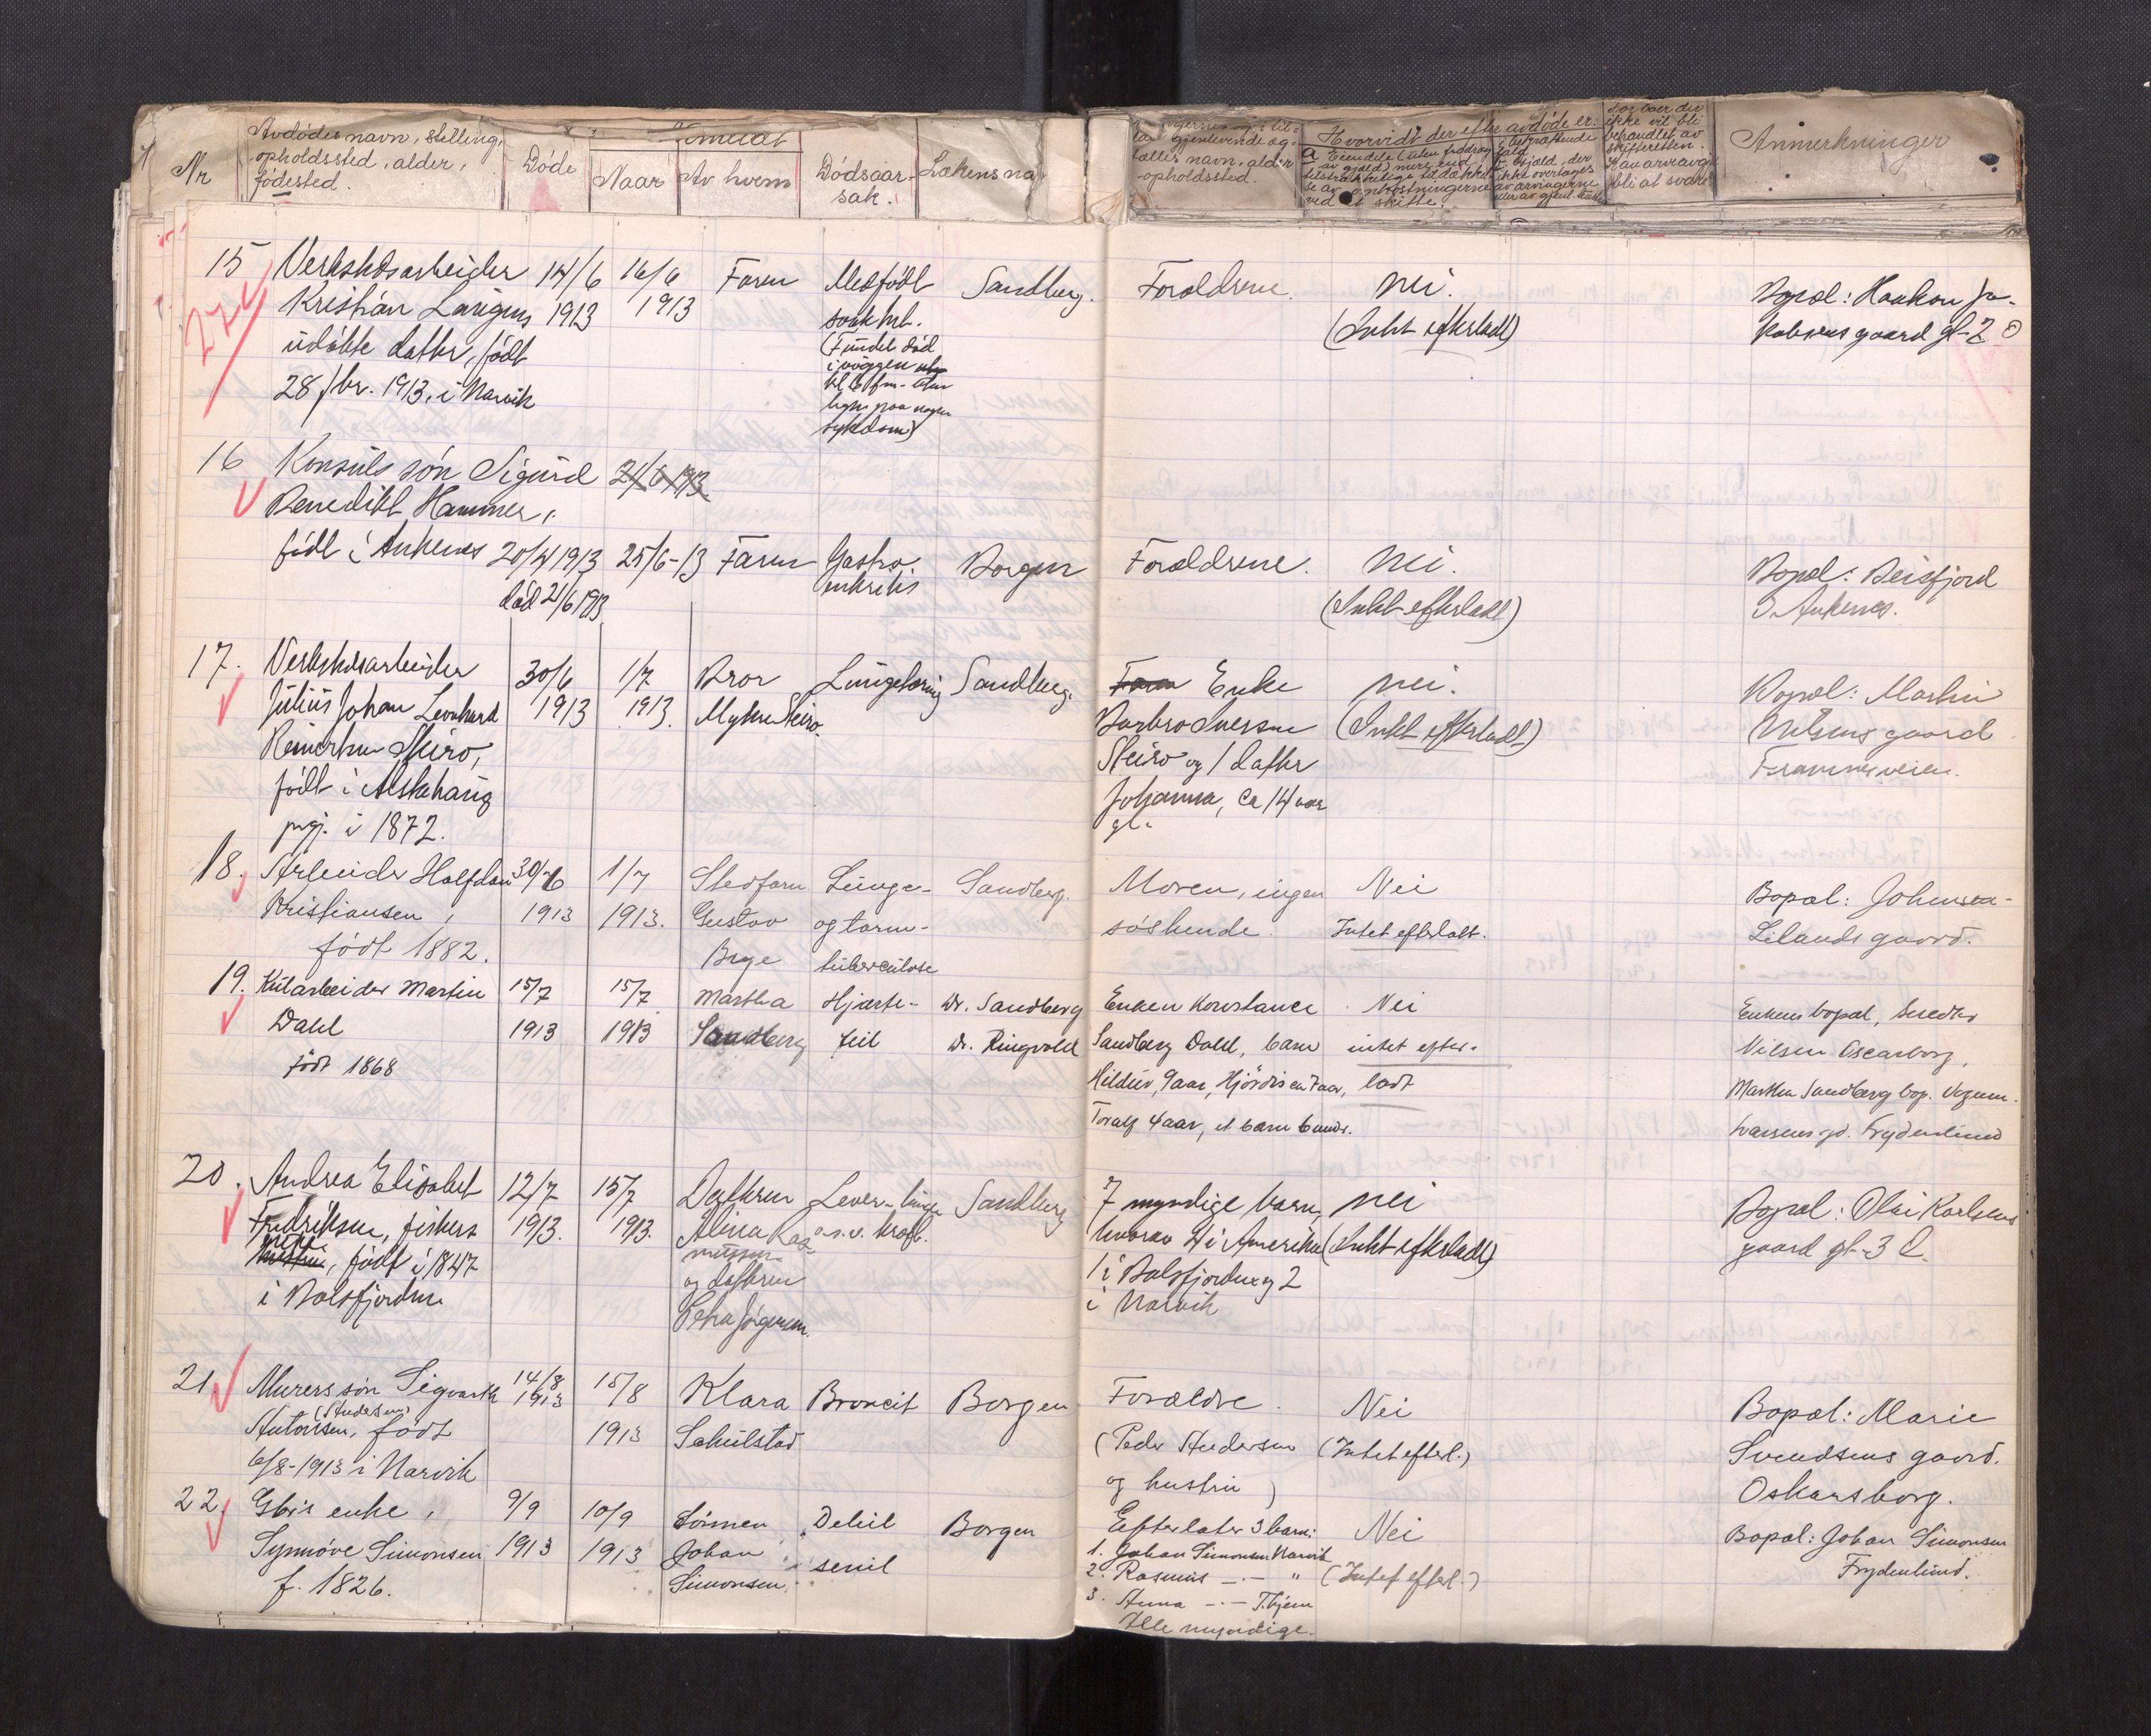 Nr
Avdødes navn, stilling,
opholdssted, alder,
fødested.
Døde
Anmeldt
Naar
Av hvem
Dødsaar-
sak.
Lækens na
gjenlevende æg-
tefælles navn, alder
opholdssted.
Hvorvidt der efter avdøde er:
Anmerkninger
15
Verkstdsarbeider
Kristian Larigens
udøbte datter, født
28 fbr. 1913, i Narvik
14/6
1913
16/6
1913
Faren
Medfødt
svakhet.
(Fundet død
i vuggen
sykdom)
Sandberg.
Forældrene.
Nei.
(Intet efterladt)
Bopæl: Haakon Ja-
kobsens gaard gt. 2
16
Konsuls søn Sigurd
Benedikt Hammer,
født i Ankenes 20/4 1913
død 21/6 1913
21/6 1913
25/6-13
Faren
Gastro
enteritis
Borgen
Forældrene.
Nei.
(Intet efterladt)
Bopæl: Beisfjord
i Ankenes.
17.
Verkstdsarbeider
Julius Johan Leonhard
Reinertsen Steiro,
født i Alstahaug
prgj. i 1872.
30/6
1913
1/7
1913.
Bror
Steiro.
Lungetæring
Sandberg.
Enke
Barbro Iversen
Steiro og 1 datter
Johanna, ca 14 aar
gl.
Nei.
(Intet efterladt)
Bopæl: Martin
Nilsens gaard
Framnesveien.
18.
Arbeider Halfdan
Kristiansen,
født 1882.
30/6
1913
1/7
1913.
Stedfaren
Gustav
Berge
Lunge-
og tarm-
tuberculose
Sandberg.
Moren, ingen
søskende.
Nei
Intet efterlatt.
Bopæl: Johnsen-
Lilands gaard.
19.
Kularbeider Martin
Dahl
født 1868
15/7
1913
15/7
1913
Martha
Sandberg
Hjærte-
feil
Dr. Sandberg
Dr. Ringvold
Enken Konstance
Sandberg Dahl, barn
Hildur, 9 aar, Hjørdis ca 7 aar,
Toralf 4 aar, et barn 6 mndr.
Nei
intet efter-
ladt
Enkens bopæl, Snedker
Nilsen Oscarborg,
Martha Sandberg bop.
gd. Frydenlund
20.
Andrea Elisabet
Fredriksen, fiskers
enke, født i 1847
i Balsfjorden
12/7
1913.
15/7
1913.
Datteren
Alina Ras-
mussen
og datteren
Petra Jørgensen.
Lever-
Sandberg
7 myndige barn,
hvorav 4 i Amerika
1 i Balsfjorden og 2
i Narvik
Nei
(Intet efterladt)
Bopæl: Olai Karlsens
gaard gt. 3 d.
21.
Murers søn Sigvarth
(Andersen)
Antonsen, født
6/8-1913 i Narvik
14/8
1913
15/8
1913
Klara
Schulstad
Broncit
Borgen
Forældre.
(Peder Andersen
og hustru)
Nei
(Intet efterl.)
Bopæl: Marie
Svendsens gaard.
Oskarsborg.
22.
Gbr's enke,
Synnøve Simonsen
f. 1826.
9/9
1913
10/9
1913
Sønnen
Johan
Simonsen.
Debil.
senil
Borgen
Efterlater 3 barn:
1. Johan Simonsen Narvik
2. Rasmus -.- "
3. Anna -.- T.hjem
Alle myndige.
Nei
(Intet efterl.)
Bopæl: Johan Simonsen
Frydenlund.